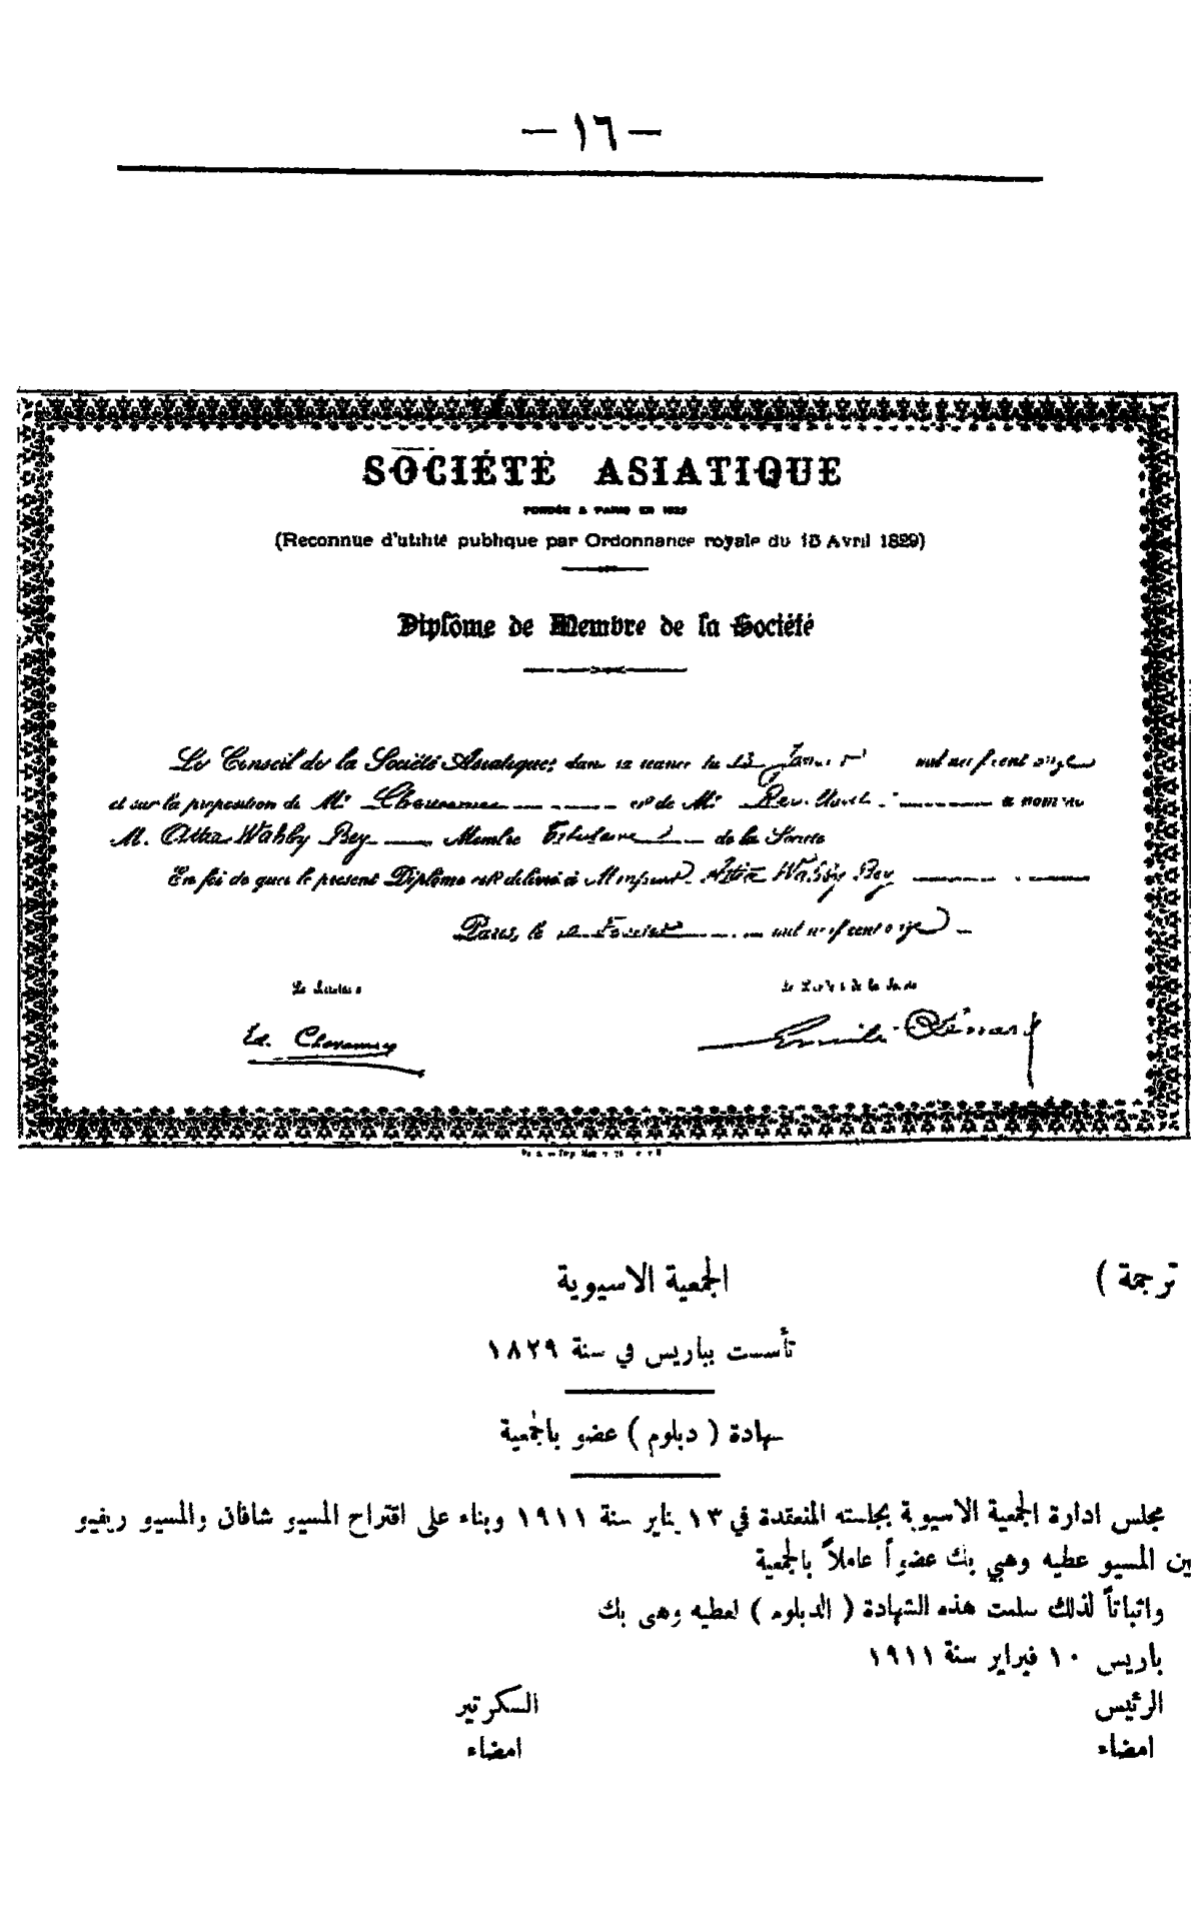 — ١٦ —
SOCIÉTÉ ASIATIQUE
FONDÉE A PARIS EN
(Reconnue d'utilité publique par Ordonnance royale du 15 Avril 1829)
Diplôme de Membre de la Société
Le Conseil de la Société Asiatique, dans sa séance du 13 mil neuf cent onze
et sur la proposition de Mr et de Mr a nommé
M. Attia Wahby Bey Membre de la Société
En foi de quoi le présent Diplôme est délivré à Monsieur Attia Wahby Bey
Paris, le mil neuf cent onze
Ed. Chavannes
Emile Sénart
ترجمة )
الجمعية الاسيوية
تأسست بباريس في سنة ١٨٢٩
هادة ( دبلوم ) عضو بالجمعية
مجلس ادارة الجمعية الاسيوية بجلسته المنعقدة في ١٣ يناير سنة ١٩١١ وبناء على اقتراح المسيو شافان والمسيو ريفيو
ين المسيو عطيه وهبي بك عضواً عاملاً بالجمعية
واثباتاً لذلك سلمت هذه الشهادة ( الدبلوم ) لعطيه وهبى بك
باريس ١٠ فبراير سنة ١٩١١
الرئيس السكرتير
امضاء امضاء